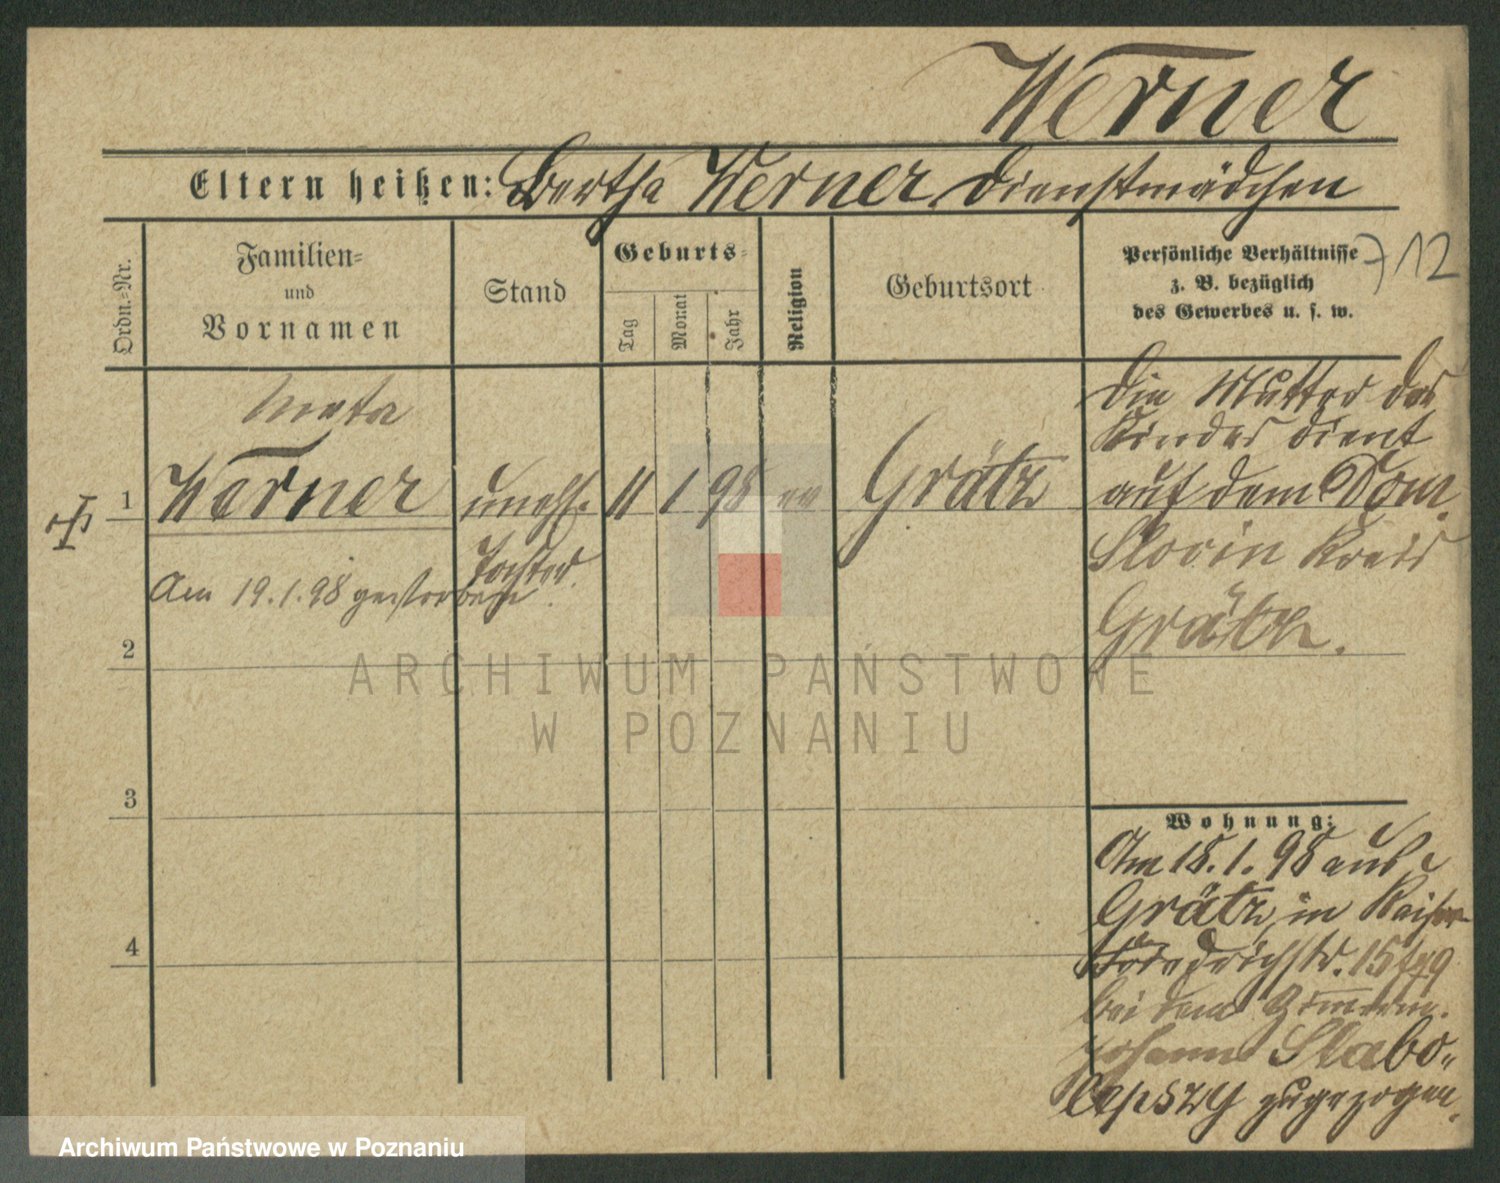 Werner
Eltern heißen: Bertha Werner, Dienstmädchen
Ordn.-Nr.
Familien-
und
Vornamen
Stand
Geburts-
Tag
Monat
Jahr
Religion
Geburtsort
Persönliche Verhältnisse
z. B. bezüglich
des Gewerbes u. s. w.
712
Meta
1 Werner unehl. 11 1 98 ev Grätz
Tochter.
Am 19.1.98 gestorben.
Die Mutter des
Kindes dient
auf dem Dom.
Kreis
Grätz.
2
3
4
Wohnung:
Am 18.1.98 aus
Grätz, in Kaiser
Friedrichstr. 15
bei dem
Johann
zugezogen.
ARCHIWUM PAŃSTWOWE
W POZNANIU
Archiwum Państwowe w Poznaniu